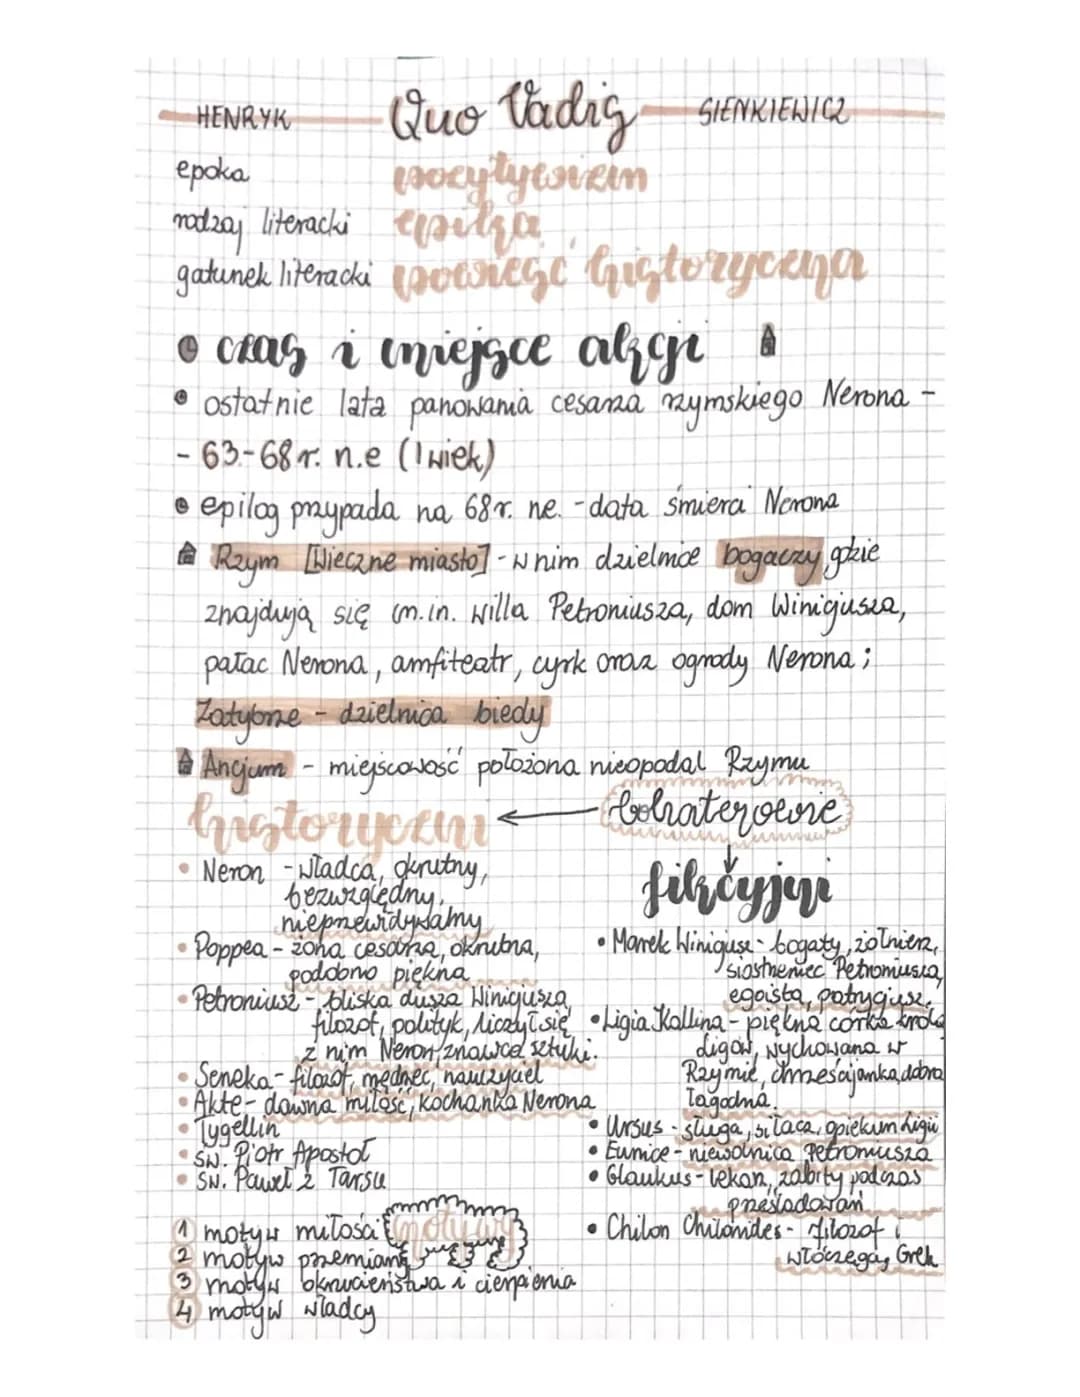 HENRYK Quo Vadis SIENKIEWICZ
epoka pozytywizm
rodzaj literacki epika
gatunek literacki powieść historyczna
czas i miejsce akcji
ostatnie lata panowania cesarza rzymskiego Nerona -
- 63-68 r. n.e (I wiek)
epilog przypada na 68 r. ne. - data śmierci Nerona
Rzym [Wieczne miasto] - w nim dzielnice bogaczy, gdzie
znajdują się m.in. willa Petroniusza, dom Winicjusza,
pałac Nerona, amfiteatr, cyrk oraz ogrody Nerona;
Zatybrze - dzielnica biedy
Ancjum - miejscowość położona nieopodal Rzymu
bohaterowie
historyczni
• Neron - władca, okrutny,
bezwzględny,
nieprzewidywalny
• Poppea - żona cesarza, okrutna,
podobno piękna
• Petroniusz - bliska dusza Winicjusza,
filozof, polityk, liczył się
z nim Neron, znawca sztuki.
• Seneka - filozof, mędrzec, nauczyciel
• Akte - dawna miłość, kochanka Nerona
• Tygellin
• Św. Piotr Apostoł
• Św. Paweł z Tarsu
fikcyjni
• Marek Winicjusz - bogaty, żołnierz,
siostrzeniec Petroniusza,
egoista, patrycjusz.
• Ligia Kallina - piękna córka króla
Ligów, wychowana w
Rzymie, chrześcijanka, dobra
łagodna.
• Ursus - sługa, siłacz, opiekun Ligii
• Eunice - niewolnica Petroniusza
• Glaukus - lekarz, zabity podczas
prześladowań
• Chilon Chilonides - filozof i
włóczęga, Grek
motywy
1 motyw miłości
2 motyw przemiany
3 motyw okrucieństwa i cierpienia
4 motyw władcy